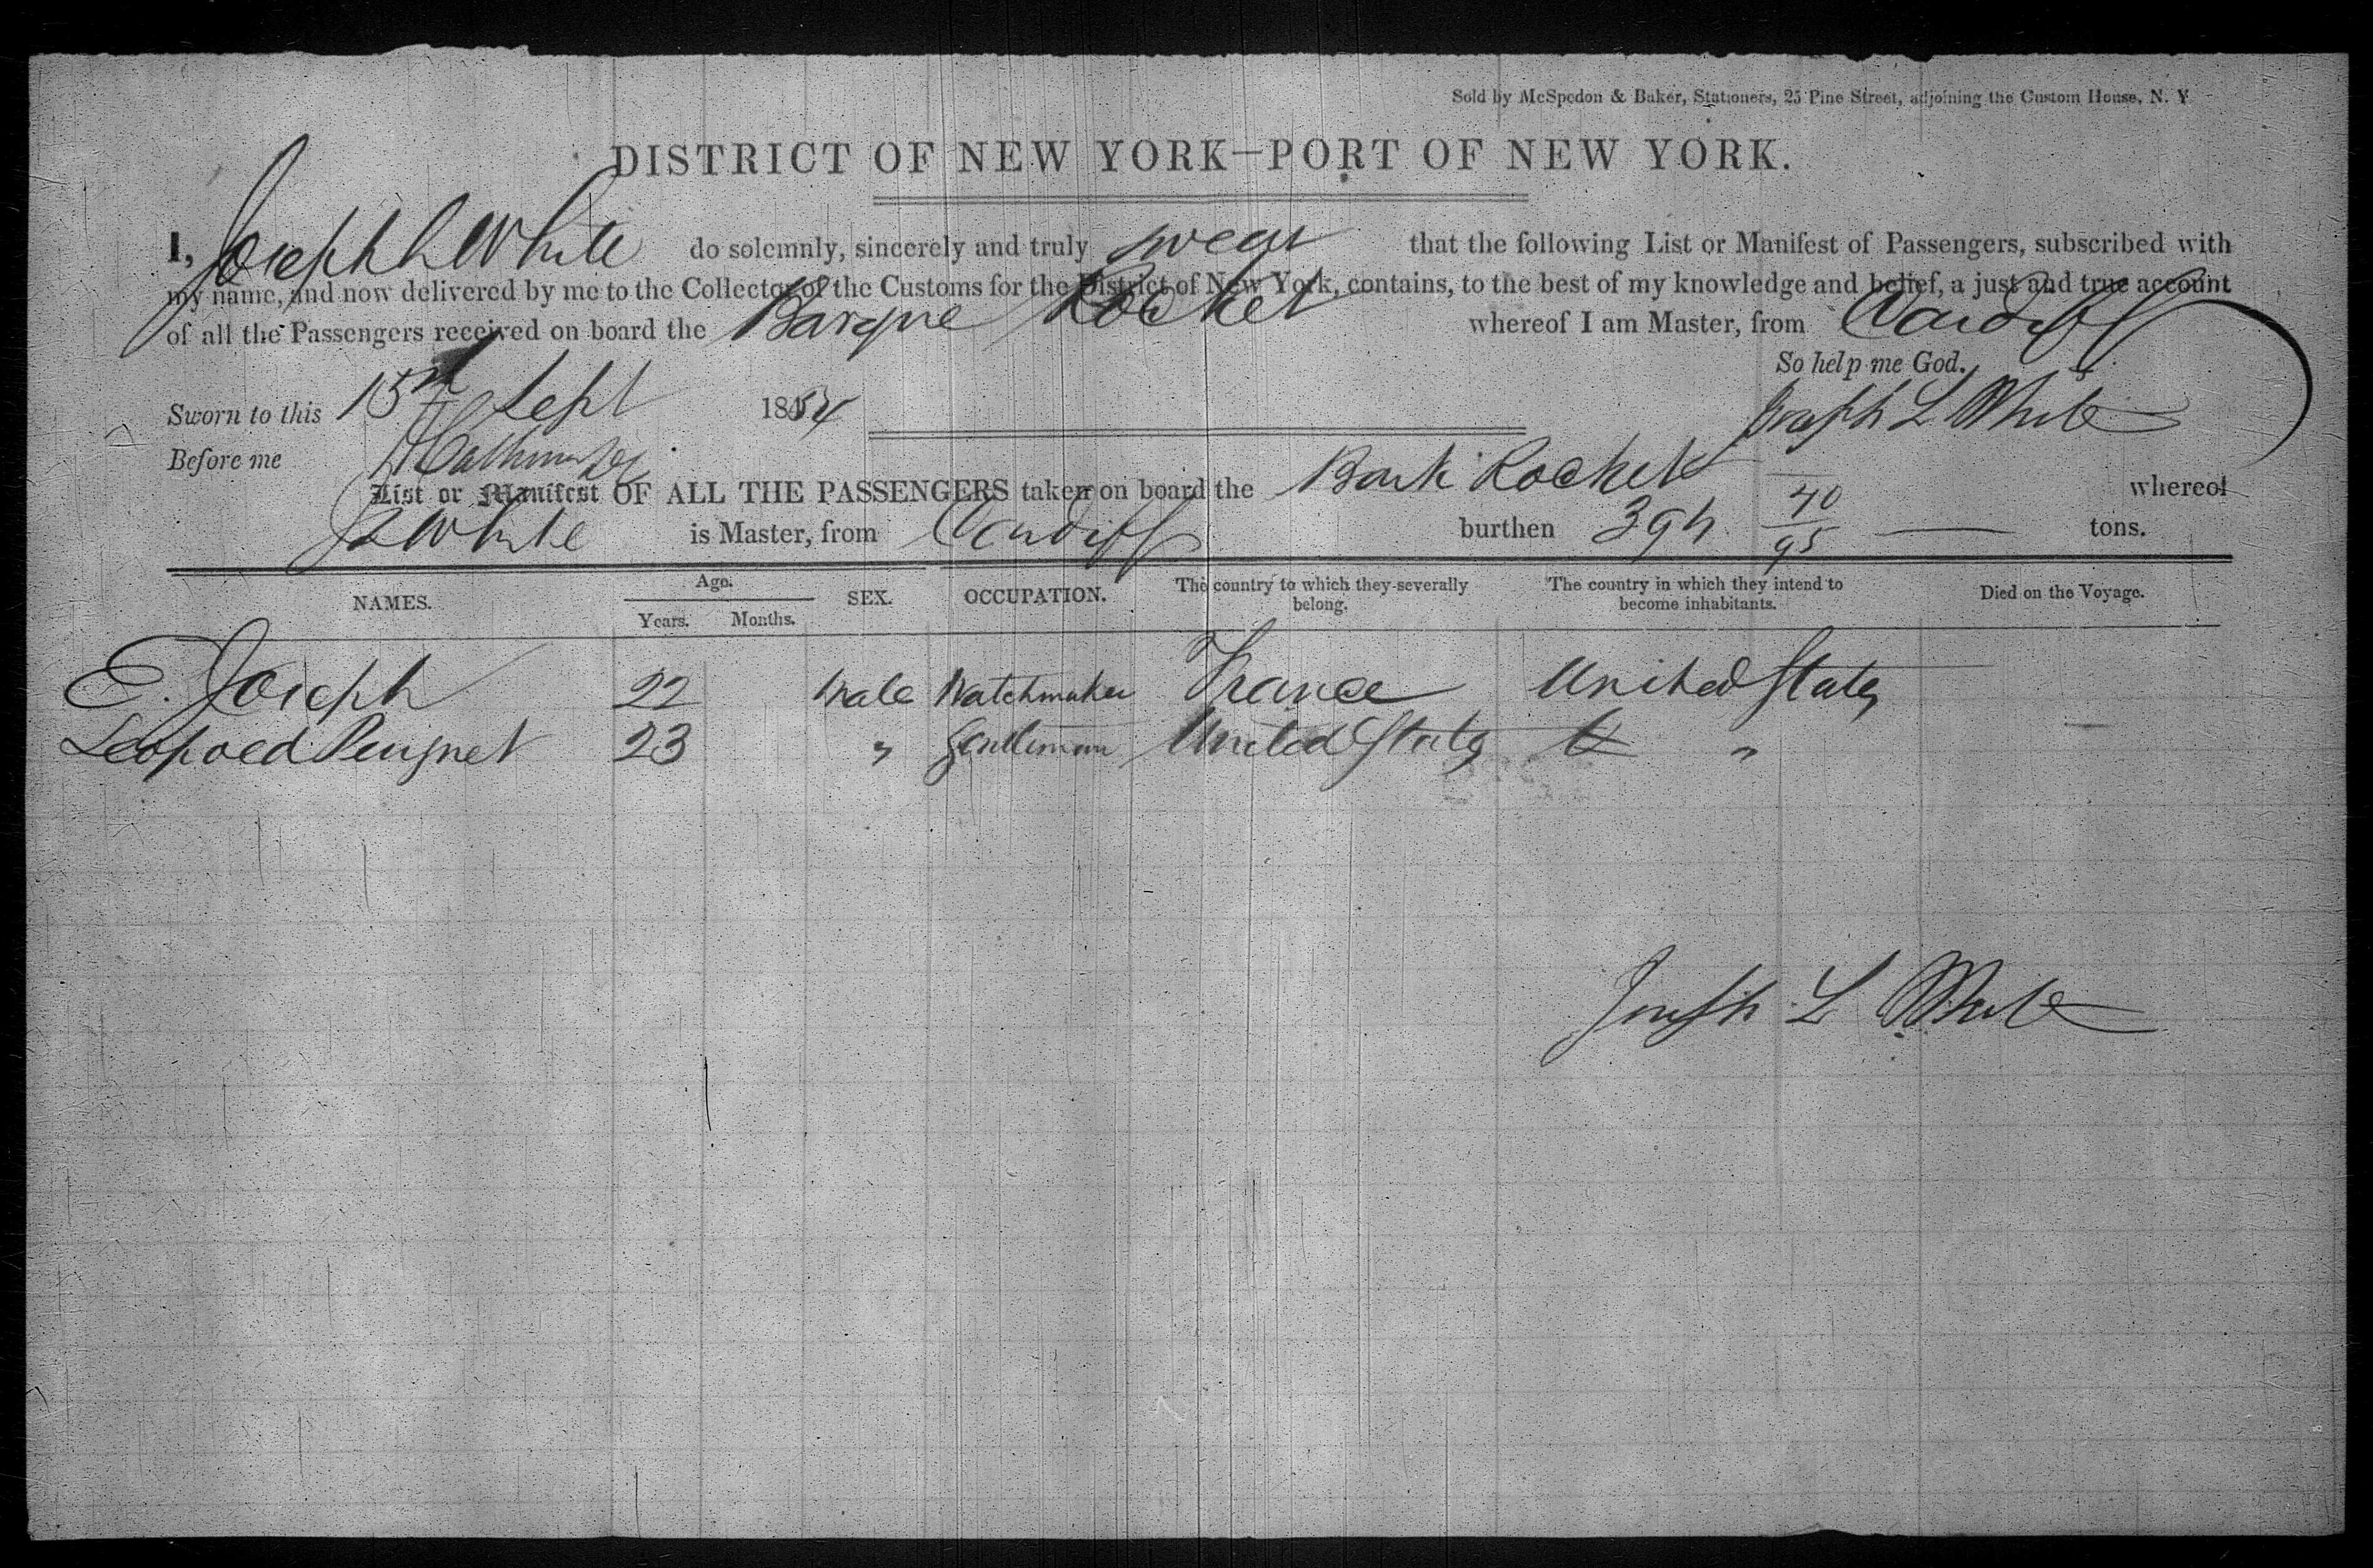 Sold by McSpedon & Baker, Stationers, 25 Pine Street, adjoining the Custom House, N. Y
DISTRICT OF NEW YORK—PORT OF NEW YORK.
I, Joseph L White do solemnly, sincerely and truly swear that the following List or Manifest of Passengers, subscribed with
my name, and now delivered by me to the Collector of the Customs for the District of New York, contains, to the best of my knowledge and belief, a just and true account
of all the Passengers received on board the Barque Rocket whereof I am Master, from Cardiff
So help me God.
Sworn to this 15th Sept 1854
Joseph L White
Before me
List or Manifest OF ALL THE PASSENGERS taken on board the Bark Rocket whereof
J L White is Master, from Cardiff burthen 394 40/95 tons.
NAMES. Age. Years. Months. SEX. OCCUPATION. The country to which they severally belong. The country in which they intend to become inhabitants. Died on the Voyage.
E. Joseph 22 Male Watchmaker France United States
Leopold Peugnet 23 " Gentleman United States " —
Joseph L White